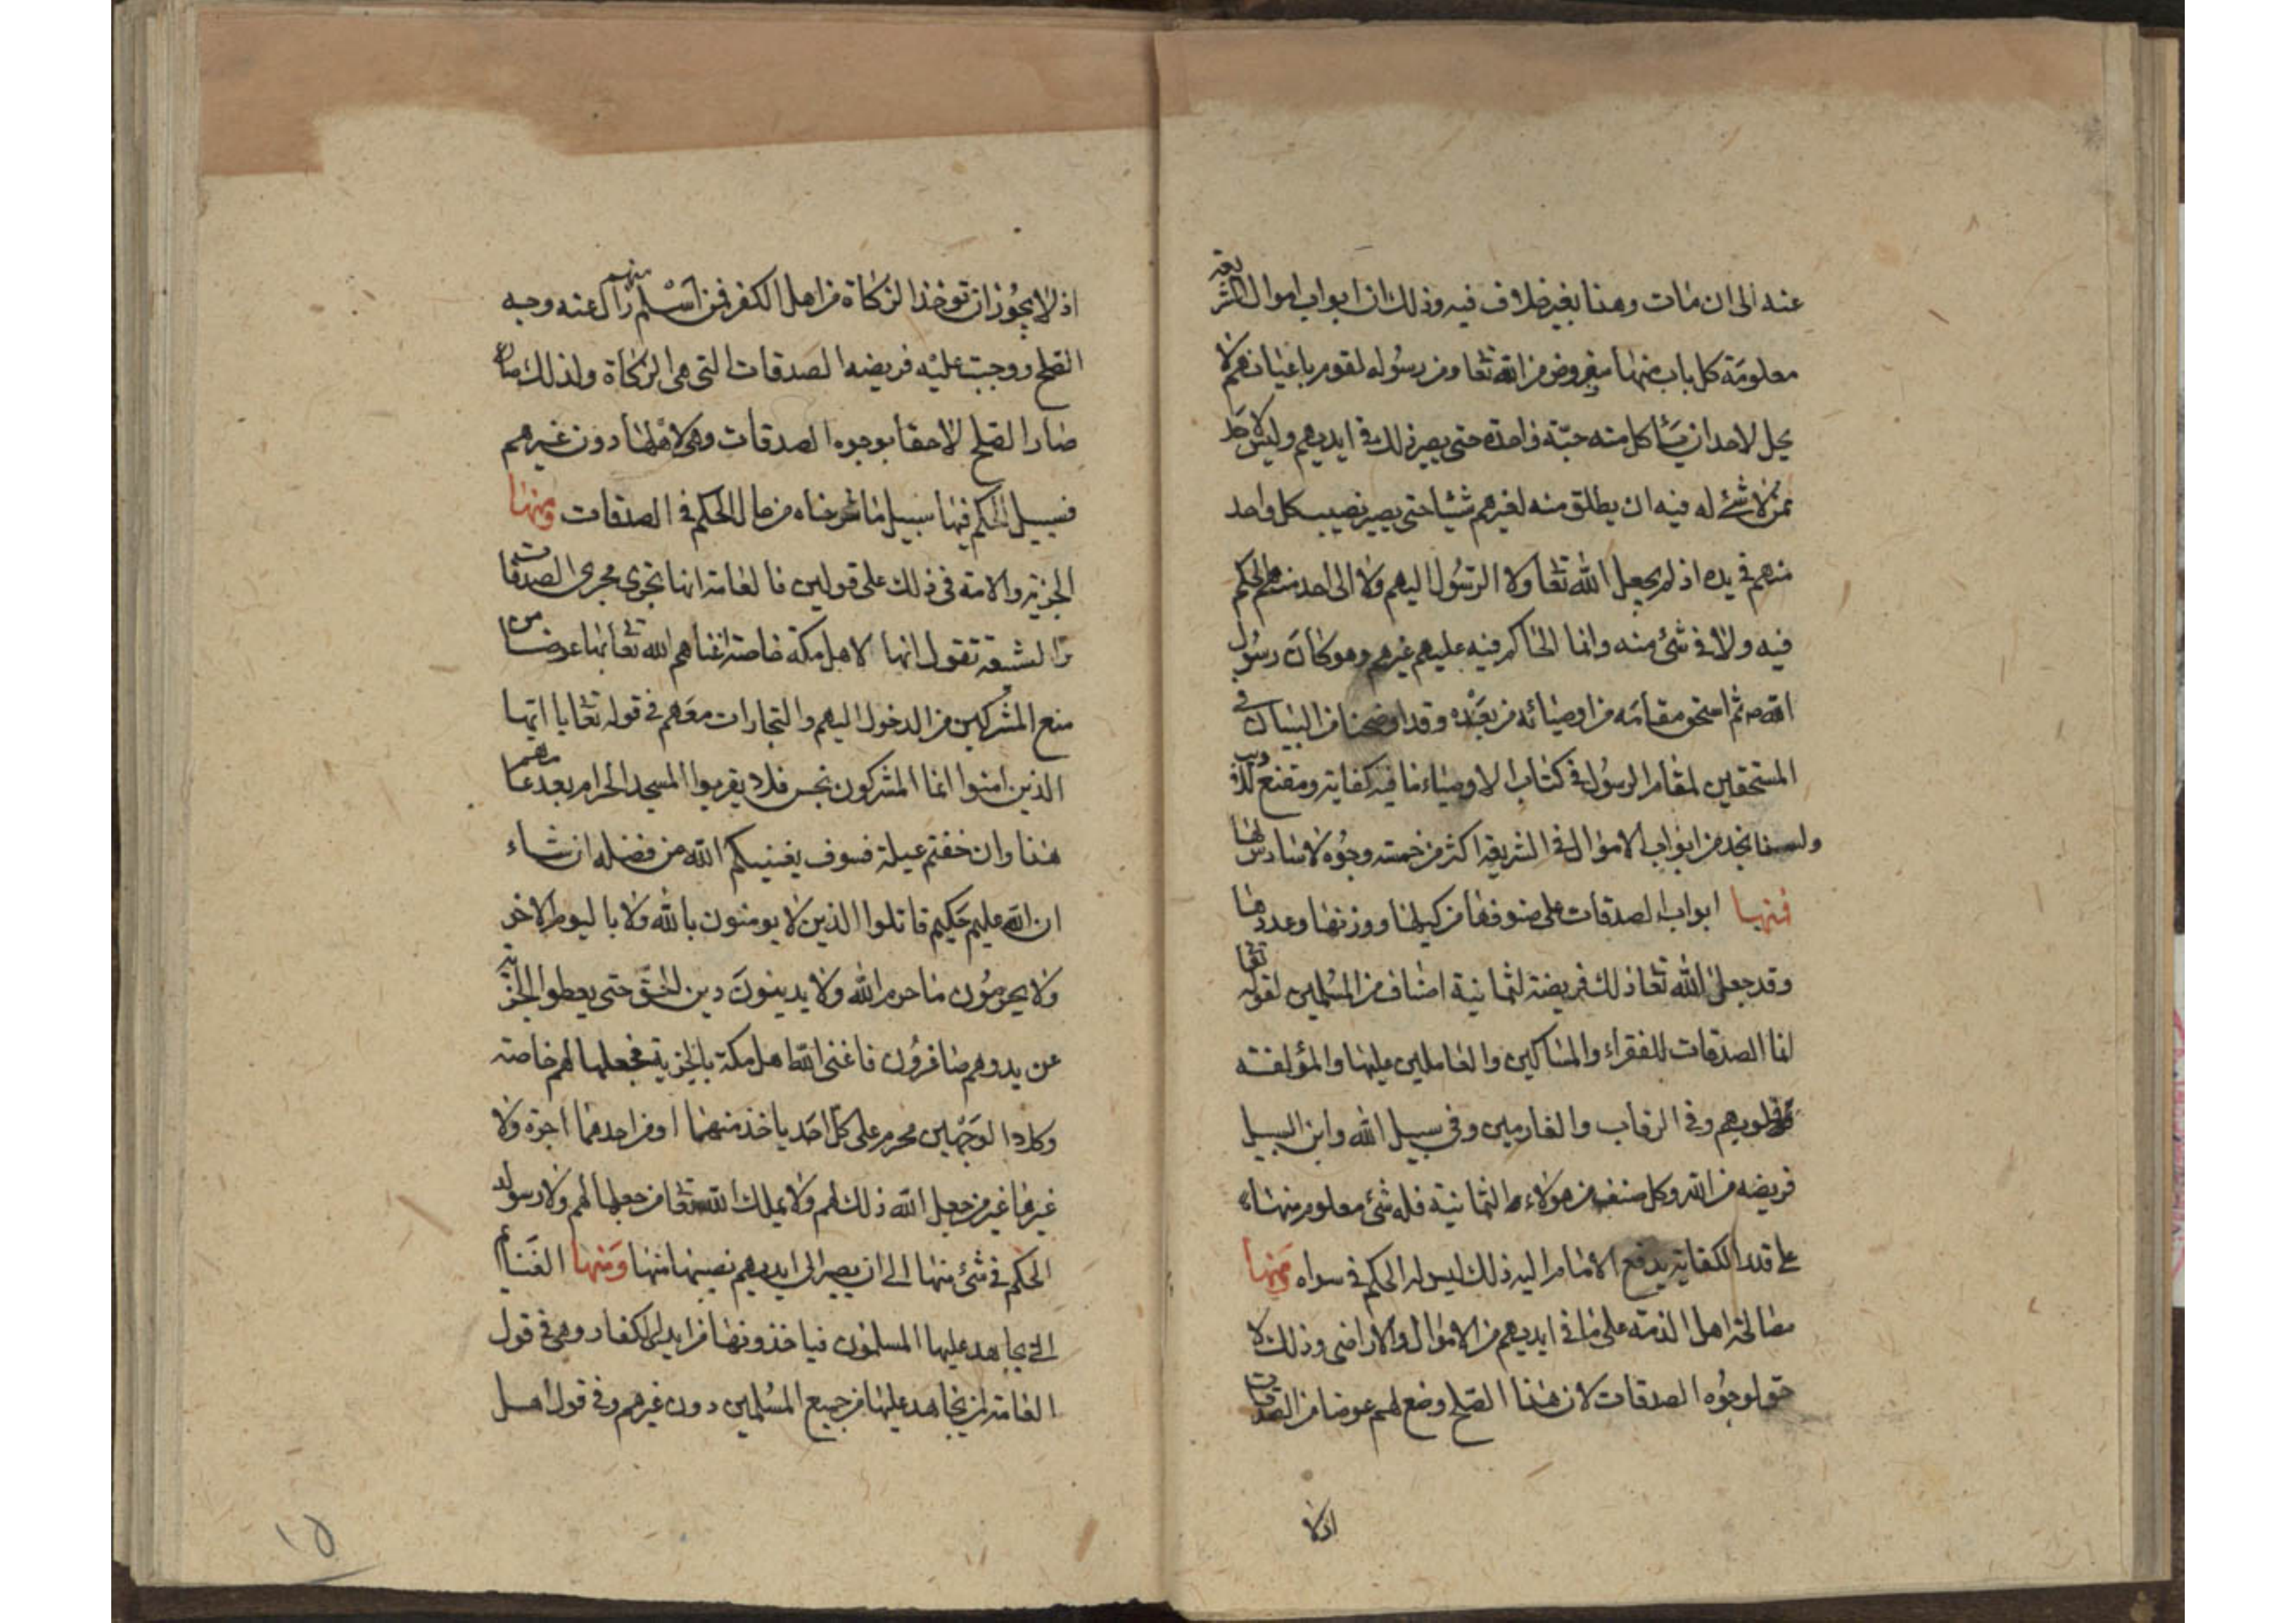 عنه الى ان مات وهذا بغير خلاف فيه وذلك ان ابواب اموال الشريعة
معلومة كل باب منها مفروض من الله تعا ومن رسوله لقوم باعيانهم لا
يحل لاحد ان يأكل منه حبة واحدة حتى يصير ذلك في ايديهم وليس لاحد
ممن لا شئ له فيه ان يطلق منه لغيرهم شيئا حتى يصير نصيب كل واحد
منهم في يده اذ لم يجعل الله تعا ولا الرسول اليهم ولا الى احد منهم الحكم
فيه ولا في شئ منه وانما الحاكم فيه عليهم غيرهم وهو كان رسول
الله ص ثم استحق مقامه من اوصيائه من بعده وقد اوضحنا من البيان في
المستحقين لمقام الرسول في كتاب الاوصياء ما فيه كفاية ومقنع
ولسنا نجد من ابواب الاموال في الشريعة اكثر من خمسة وجوه لا سادس لها
فمنها ابواب الصدقات على صنوفها من كيلها ووزنها وعددها
وقد جعل الله تعا ذلك فريضة لثمانية اصناف من المسلمين لقوله تعا
انما الصدقات للفقراء والمساكين والعاملين عليها والمؤلفة
قلوبهم وفي الرقاب والغارمين وفي سبيل الله وابن السبيل
فريضه من الله وكل صنف من هولاء الثمانية فله شئ معلوم منها
على قدر الكفاية يدفع الامام اليه ذلك ليس له الحكم في سواه ومنها
مصالحة اهل الذمة على ما في ايديهم من الاموال والاراضى وذلك لا
حق لوجوه الصدقات لان هذا الصلح وضع لهم عوضا من الصدقات
اذ لا
اذ لا يجوز ان توخذ الزكاة من اهل الكفر فمن اسلم منهم زال عنه وجه
الصلح ووجبت عليه فريضه الصدقات التى هى الزكاة ولذلك
صار الصلح لاحقا بوجوه الصدقات وهى لاهلها دون غيرهم
فسبيل الحكم فيها سبيل ما شرحناه من حال الحكم في الصدقات ومنها
الجزية والامة فى ذلك على قولين فالعامة انها تجرى مجرى الصدقات
والشيعة تقول انها لاهل مكة خاصة اغناهم الله تعا بها عوضا من
منع المشركين من الدخول اليهم والتجارات معهم في قوله تعا يا ايها
الذين امنوا انما المشركون نجس فلا يقربوا المسجد الحرام بعد عامهم
هذا وان خفتم عيلة فسوف يغنيكم الله من فضله ان شاء
ان الله عليم حكيم قاتلوا الذين لا يومنون بالله ولا باليوم الاخر
ولا يحرمون ما حرم الله ولا يدينون دين الحق حتى يعطوا الجزية
عن يد وهم صاغرون فاغنى الله اهل مكة بالجزية فجعلها لهم خاصة
وكلا الوجهين محرم على كل احد ياخذ منهما او من احدهما اجرة ولا
غيرها غير من جعل الله ذلك لهم ولا يملك الله تعا من جعلها لهم ولا رسوله
الحكم في شئ منها الى ان يصير الى ايديهم نصيبها منها ومنها الغنائم
التى يجاهد عليها المسلمون فياخذونها من ايدى الكفار وهى في قول
العامة لمن يجاهد عليها من جميع المسلمين دون غيرهم وفي قول اهل
١٥